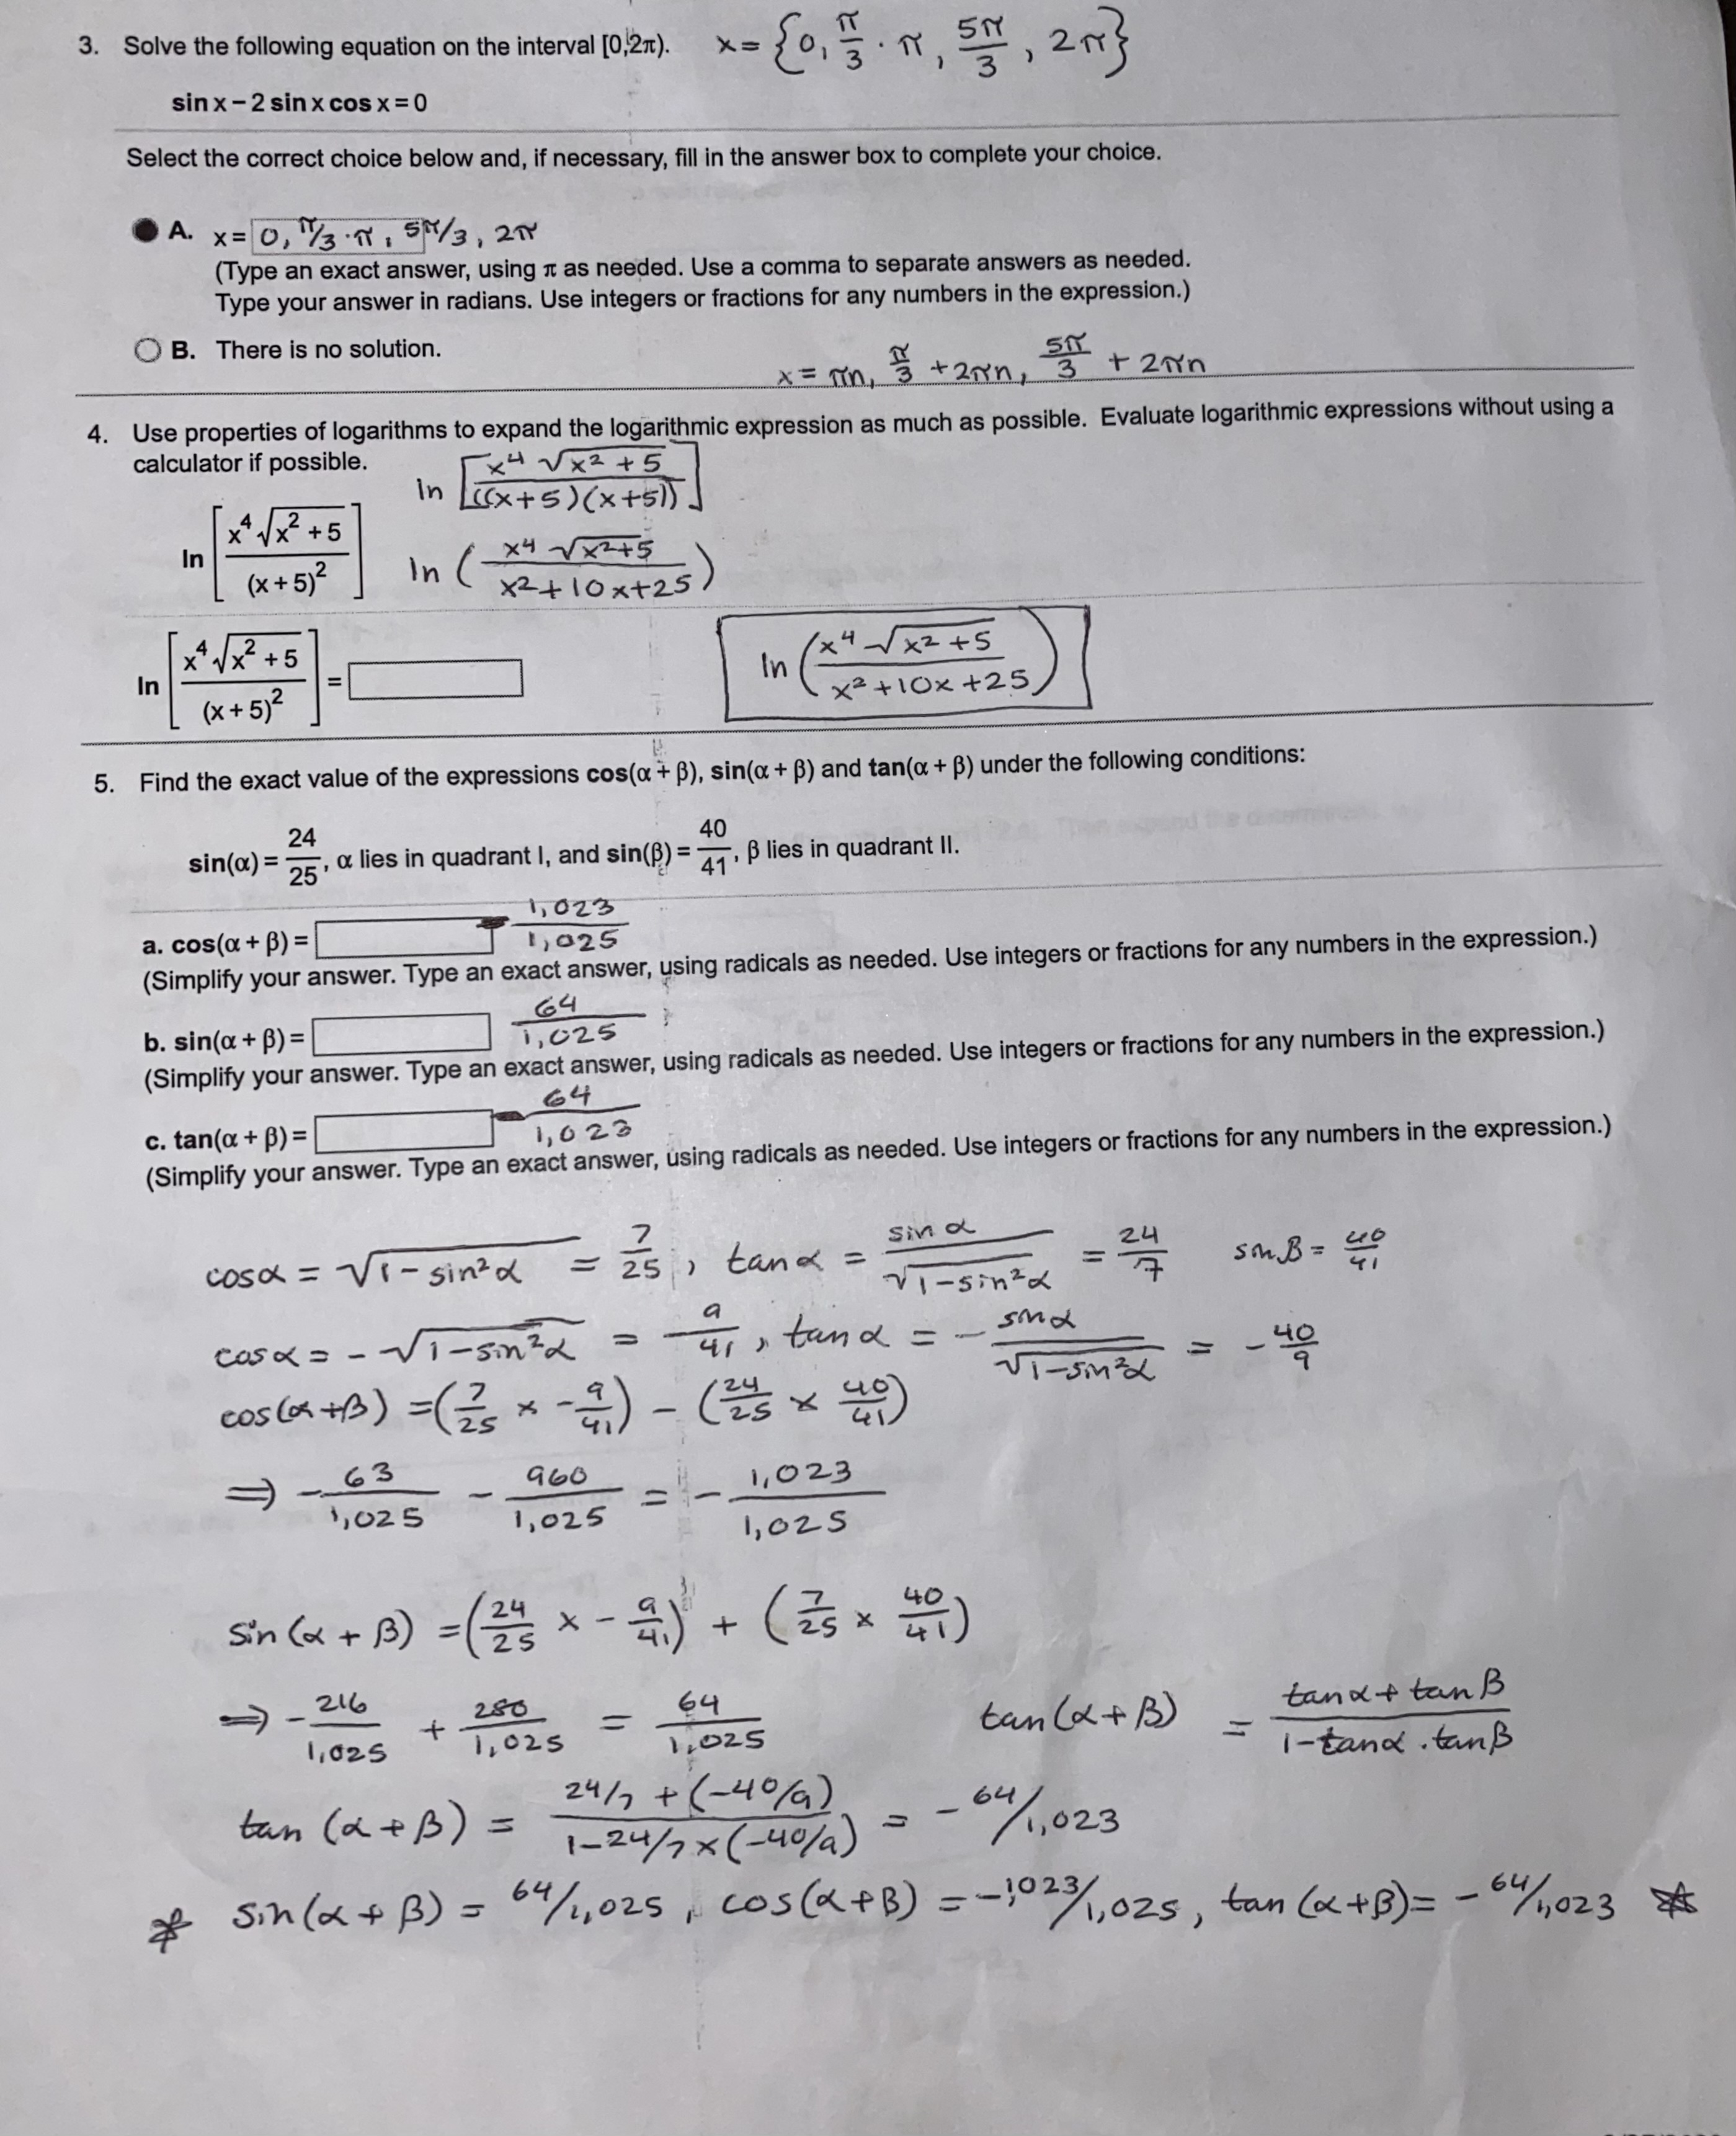 3. Solve the following equation on the interval [0,2π). x = {0, π/3 · π, 5π/3, 2π}
sin x − 2 sin x cos x = 0
Select the correct choice below and, if necessary, fill in the answer box to complete your choice.
A. x = 0, π/3 · π, 5π/3, 2π
(Type an exact answer, using π as needed. Use a comma to separate answers as needed.
Type your answer in radians. Use integers or fractions for any numbers in the expression.)
B. There is no solution.
x = πn, π/3 + 2πn, 5π/3 + 2πn
4. Use properties of logarithms to expand the logarithmic expression as much as possible. Evaluate logarithmic expressions without using a
calculator if possible.
ln [x⁴ √(x² + 5) / ((x+5)(x+5))]
ln [x⁴ √(x² + 5) / (x + 5)²]
ln (x⁴ √(x²+5) / x²+10x+25)
ln [x⁴ √(x² + 5) / (x + 5)²] =
ln (x⁴ √(x² + 5) / x² + 10x + 25)
5. Find the exact value of the expressions cos(α + β), sin(α + β) and tan(α + β) under the following conditions:
sin(α) = 24/25, α lies in quadrant I, and sin(β) = 40/41, β lies in quadrant II.
a. cos(α + β) = − 1,023/1,025
(Simplify your answer. Type an exact answer, using radicals as needed. Use integers or fractions for any numbers in the expression.)
b. sin(α + β) = 64/1,025
(Simplify your answer. Type an exact answer, using radicals as needed. Use integers or fractions for any numbers in the expression.)
c. tan(α + β) = − 64/1,023
(Simplify your answer. Type an exact answer, using radicals as needed. Use integers or fractions for any numbers in the expression.)
cosα = √(1 − sin²α) = 7/25, tanα = sinα / √(1−sin²α) = 24/7 sinβ = 40/41
cosα = −√(1−sin²α) = −9/41, tanα = − sinα / √(1−sin²α) = −40/9
cos(α+β) = (7/25 × −9/41) − (24/25 × 40/41)
⇒ −63/1,025 − 960/1,025 = − 1,023/1,025
sin(α + β) = (24/25 × −9/41) + (7/25 × 40/41)
⇒ −216/1,025 + 280/1,025 = 64/1,025
tan(α+β) = tanα + tanβ / 1−tanα · tanβ
tan(α+β) = 24/7 + (−40/9) / 1−24/7 × (−40/9) = −64/1,023
* sin(α+β) = 64/1,025, cos(α+β) = −1,023/1,025, tan(α+β) = −64/1,023 *